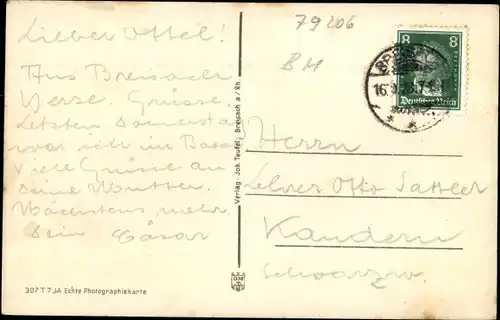 Lieber Ottel!
Aus Breisach
Herzl. Grüsse.
Letzten Donnerstag
war ich in Basel
Viele Grüsse an
Deine Mutter.
Nächstens mehr.
Dein Cäsar
307 T 7 JA Echte Photographiekarte
Verlag: Joh. Teufel, Breisach a/Rh.
79206
BM
8 8
Deutsches Reich
Herrn
Lehrer Otto Sattler
Kandern
Schwarzw.